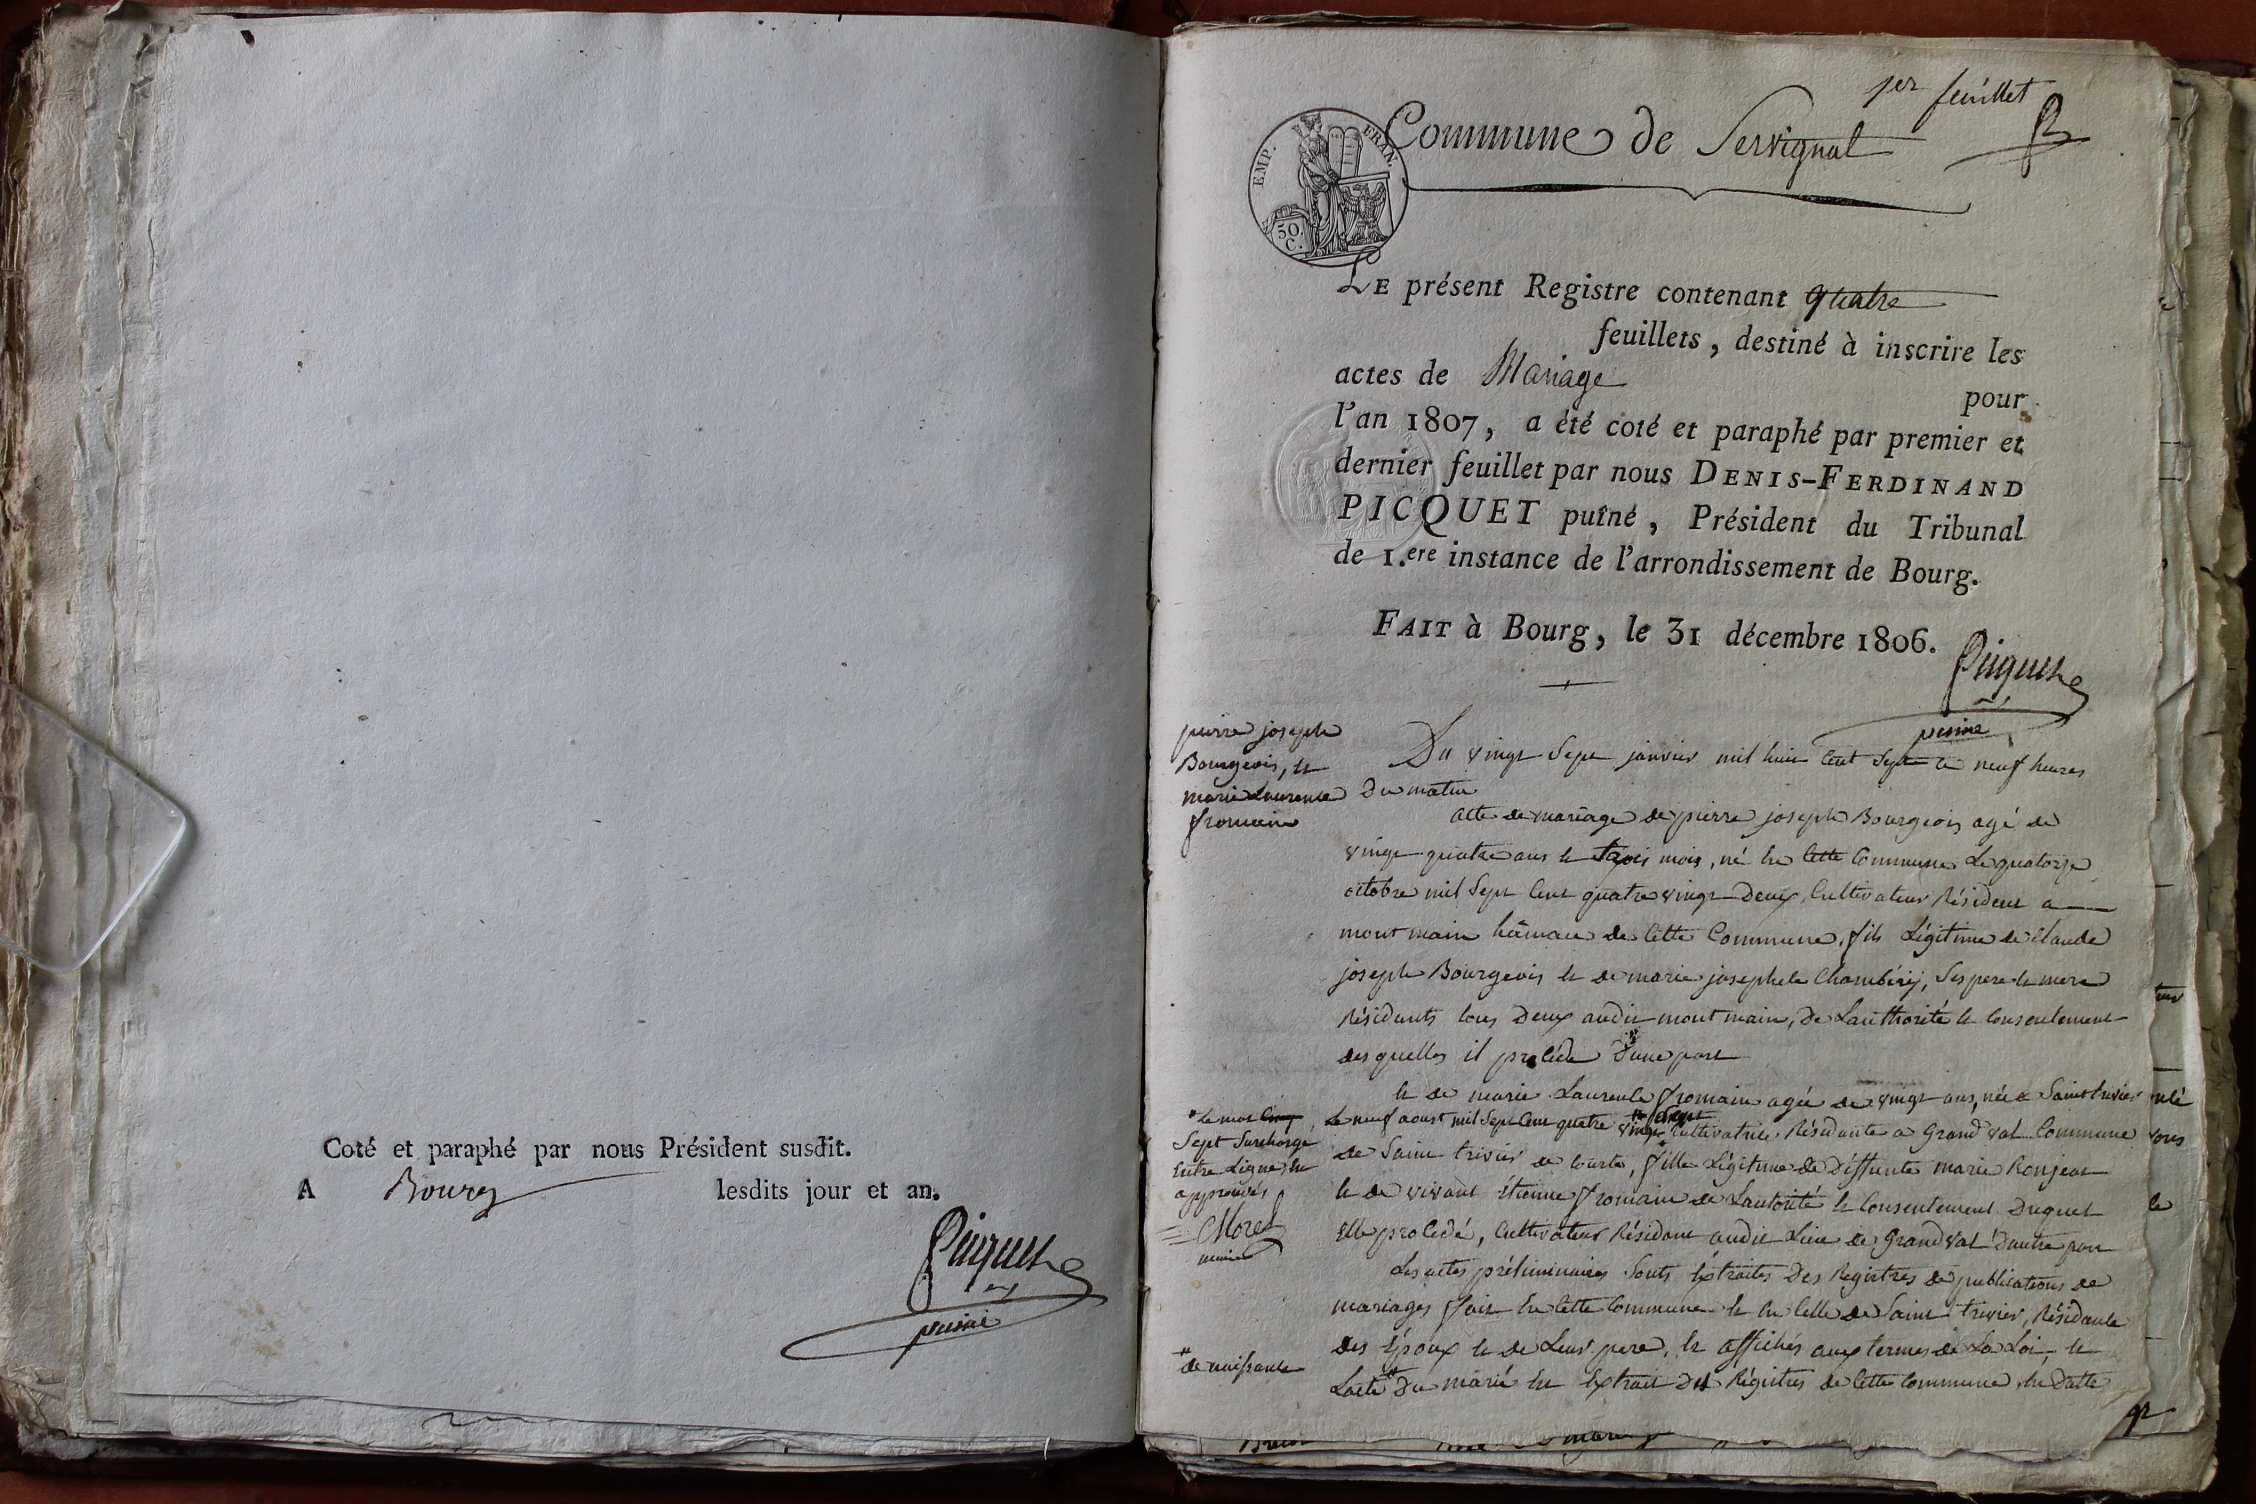 Coté et paraphé par nous Président susdit.
A Bourg lesdits jour et an.
Picquet
puiné
1er feuillet
Commune de Servignat
EMP. FRAN.
50 C.
LE présent Registre contenant quatre
feuillets, destiné à inscrire les
actes de Mariage
pour
l'an 1807, a été coté et paraphé par premier et
dernier feuillet par nous DENIS-FERDINAND
PICQUET puîné, Président du Tribunal
de 1.ere instance de l'arrondissement de Bourg.
FAIT à Bourg, le 31 décembre 1806.
Picquet
puiné
pierre joseph
Bourgeois, et
marie Laurence
fromain
Du vingt Sept janvier mil huit Cent Sept a neuf heures
Du matin
acte de mariage de pierre joseph Bourgeois agé de
vingt quatre ans et trois mois, né en Cette Commune Le quatorze
octobre mil Sept Cent quatre vingt Deux, Cultivateur Résident a
mont main hâmau de Cette Commune, fils Légitime de Claude
joseph Bourgeois et de marie josephete Chambéry, Ses pere et mere
Résidents tous Deux audit mont main, De Lauthorité et Consentement
desquelles il procéde d'une part
et de marie Laurence fromain agée de vingt ans, née a Saint trivier
Le neuf aoust mil Sept Cent quatre vingt Sept Cultivatrice, Résidante a Grand val Commune
de Saint trivier de Courtes, fille Légitime de Déffunte marie Ronjeat
et de vivant étienne fromain de Lautorité et Consentement Duquel
elle procédé, Cultivateur Résidant audit Lieu de Grand val d'autre part
Les actes préliminaires Sonts Extraites Des Registres de publications de
mariages fait En Cette Commune et en Celle de Saint trivier, Résidante
des époux et de Leur pere, et affichés aux termes de La Loi, et
Lacte du marié En Extrait Des Régistres de Cette Commune, En Datte
* Le mot Cinq
Sept Surcharge
Entre Ligne
approuvés
Morel
maire
de naissance